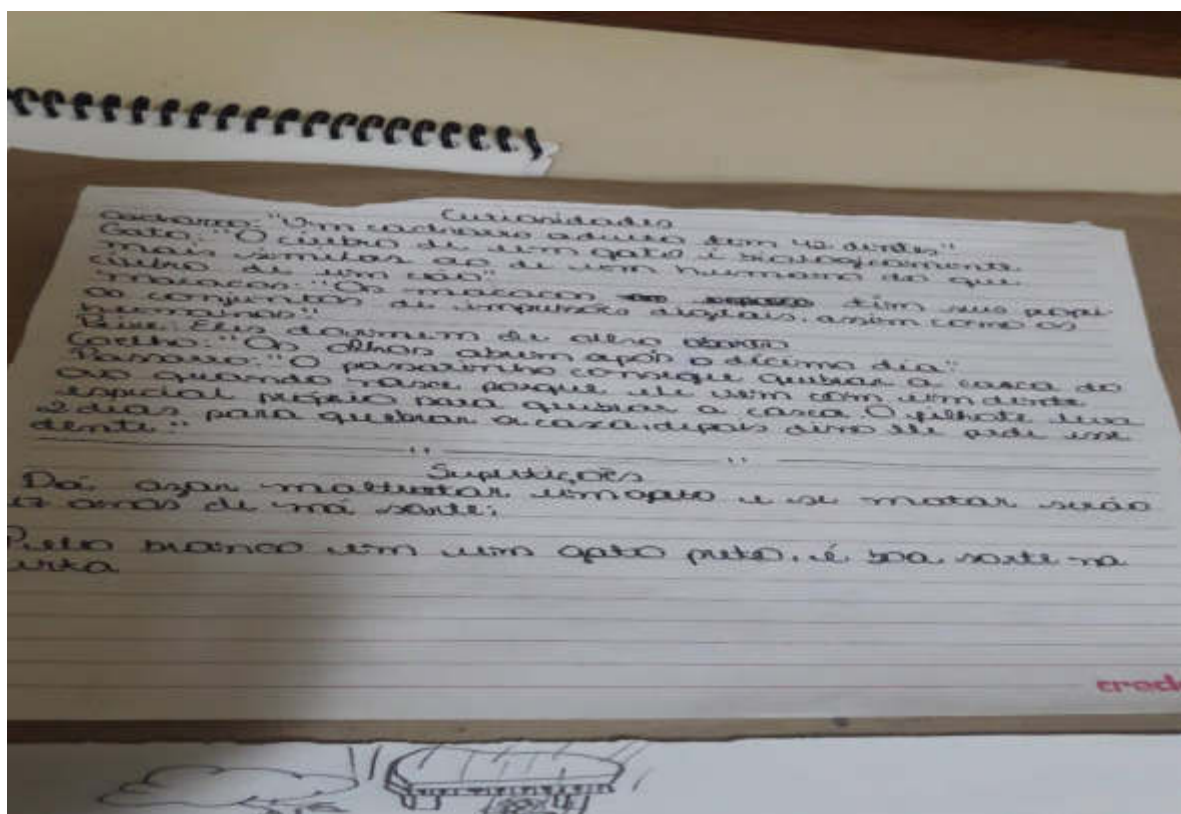 Curiosidades
Cachorro: "Um cachorro adulto tem 42 dentes"
Gato: "O cérebro de um gato é biologicamente
mais similar ao de um humano do que
cérebro de um cão"
Macacos: "Os macacos têm sus própri
os conjuntos de impressões digitais, assim como os
humanos"
Peixe: Eles dormem de olho aberto
Coelho: "Os olhos abrem após o décimo dia"
Passaro: "O passarinho consegue quebrar a casca do
ovo quando nasce porque ele vem com um dente
especial próprio para quebrar a casca O filhote leva
2 dias para quebrar a casca, depois disso ele perde esse
dente."
Superstições
Dá azar maltratar um gato e se matar serão
17 anos de má sorte;
Pelo branco em um gato preto, é boa sorte na
certa
cred